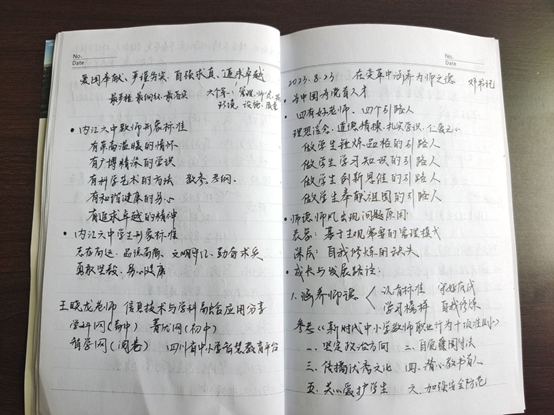 No.
Date
爱国奉献、严谨务实、自强求真、追求卓越
最严谨 最细致 最务实
• 内江六中教师形象标准
有崇高温暖的情怀
有广博精深的学识
有科学艺术的方法 教参 考纲
有和谐健康的身心
有追求卓越的精神
• 内江六中学生形象标准
志存高远、品德高尚、文明守纪、勤奋求实
勇敢坚毅、身心健康
王晓龙老师 信息技术与学科融合应用分享
学科网(高中) 菁优网(初中)
智学网(阅卷) 四川省中小学智慧教育平台
No.
Date
2023.8.23 在变革中涵养为师之德 邓书记
• 为中国为党育人才
• 四有好老师、四个引路人
理想信念,道德情操,扎实学识,仁爱之心
做学生锤炼品格的引路人
做学生学习知识的引路人
做学生创新思维的引路人
做学生奉献祖国的引路人
• 师德师风出现问题原因
表层:基于主观
深层:自我修炼的缺失
• 成长与发展路径:
1. 涵养师德
学习榜样 自我修炼
参考《新时代中小学教师职业行为十项准则》
一、坚定政治方向 二、自觉爱国守法
三、传播优秀文化 四、潜心教书育人
五、关心爱护学生 六、加强安全防范